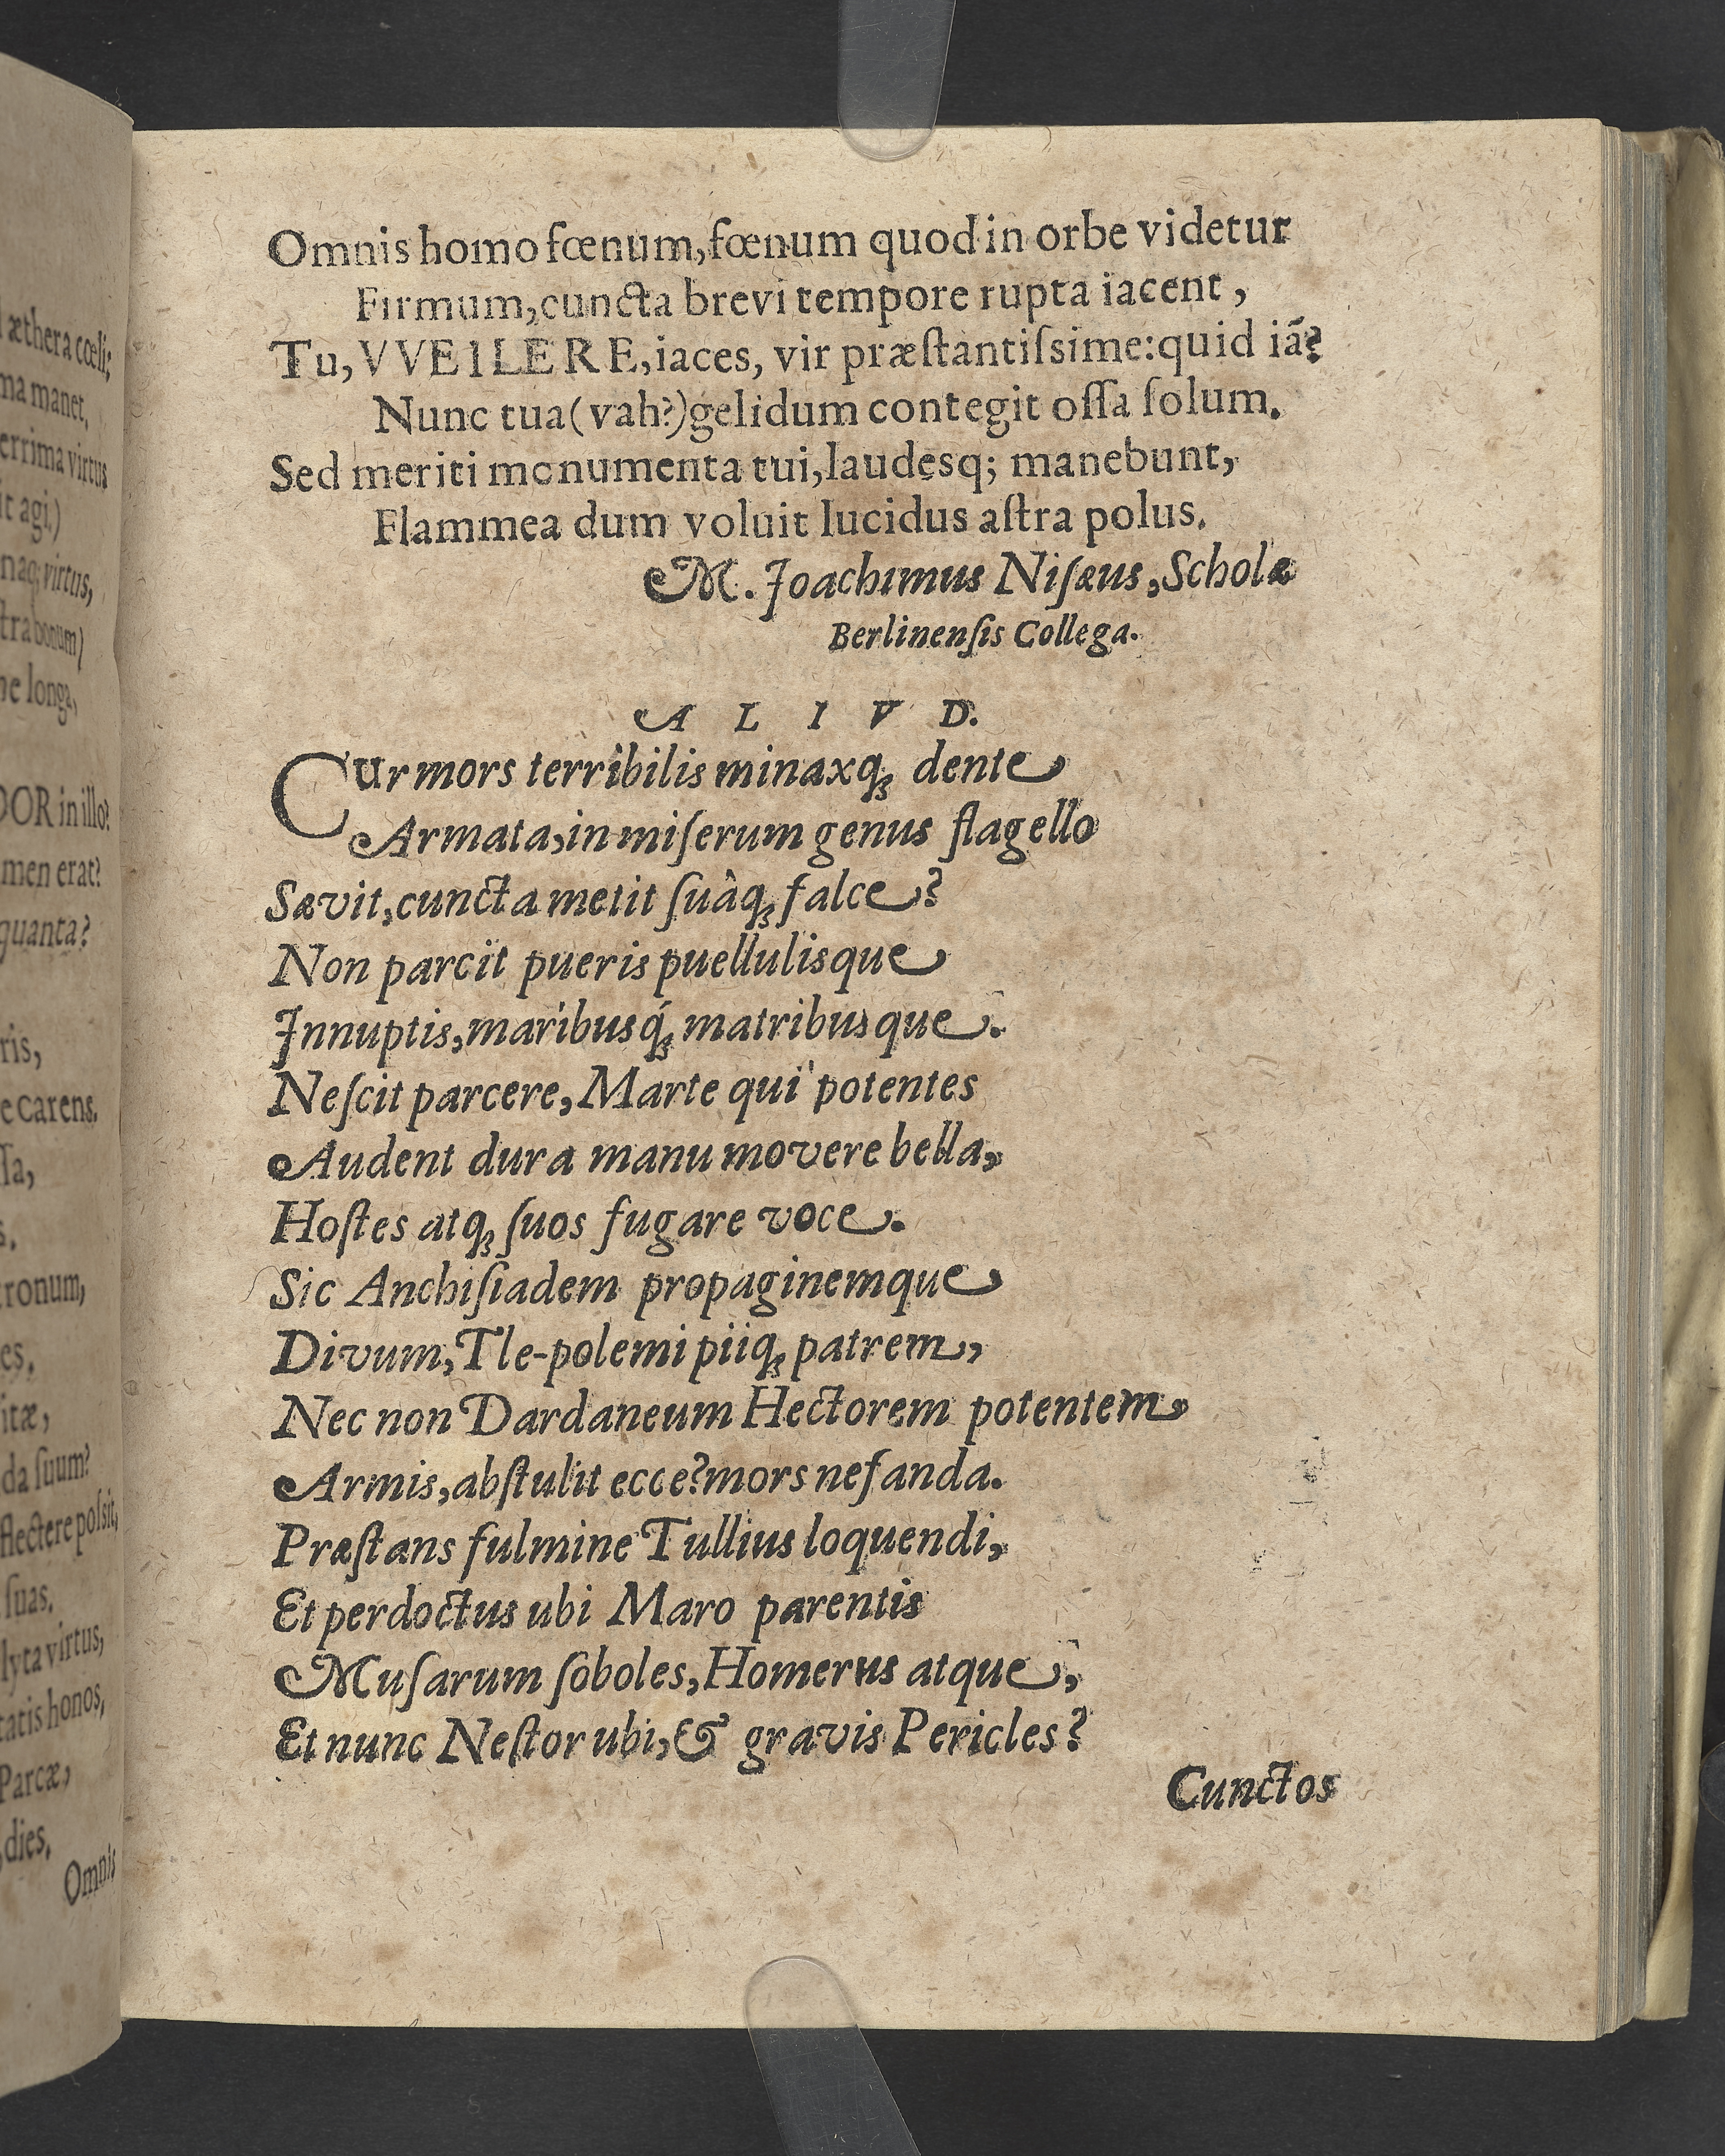 æthera cœli;
ma manet,
errima virtus
it agi.)
naq; virtus,
tra bonum)
ne longa,
DOR in illo?
men erat?
quanta?
ris,
e carens.
ſſa,
s.
tronum,
es,
itæ,
da ſuum?
flectere poſsit,
ſuas.
lyta virtus,
tatis honos,
Parcæ,
dies.
Omnis
Omnis homo fœnum, fœnum quod in orbe videtur
Firmum, cuncta brevi tempore rupta iacent,
Tu, VVEILERE, iaces, vir præſtantiſsime: quid iã?
Nunc tua (vah?) gelidum contegit oſſa ſolum.
Sed meriti monumenta tui, laudesq; manebunt,
Flammea dum voluit lucidus aſtra polus.
M. Joachimus Niſæus, Scholæ
Berlinenſis Collega.
ALIVD.
Cur mors terribilis minaxq; dente
Armata, in miſerum genus flagello
Sævit, cuncta metit ſuâq; falce?
Non parcit pueris puellulisque
Innuptis, maribusq́; matribusque.
Neſcit parcere, Marte qui potentes
Audent dura manu movere bella,
Hoſtes atq; ſuos fugare voce.
Sic Anchiſiadem propaginemque
Divum, Tle-polemi piiq; patrem,
Nec non Dardaneum Hectorem potentem,
Armis, abſtulit ecce? mors nefanda.
Præſtans fulmine Tullius loquendi,
Et perdoctus ubi Maro parentis
Muſarum ſoboles, Homerus atque,
Et nunc Neſtor ubi, & gravis Pericles?
Cunctos